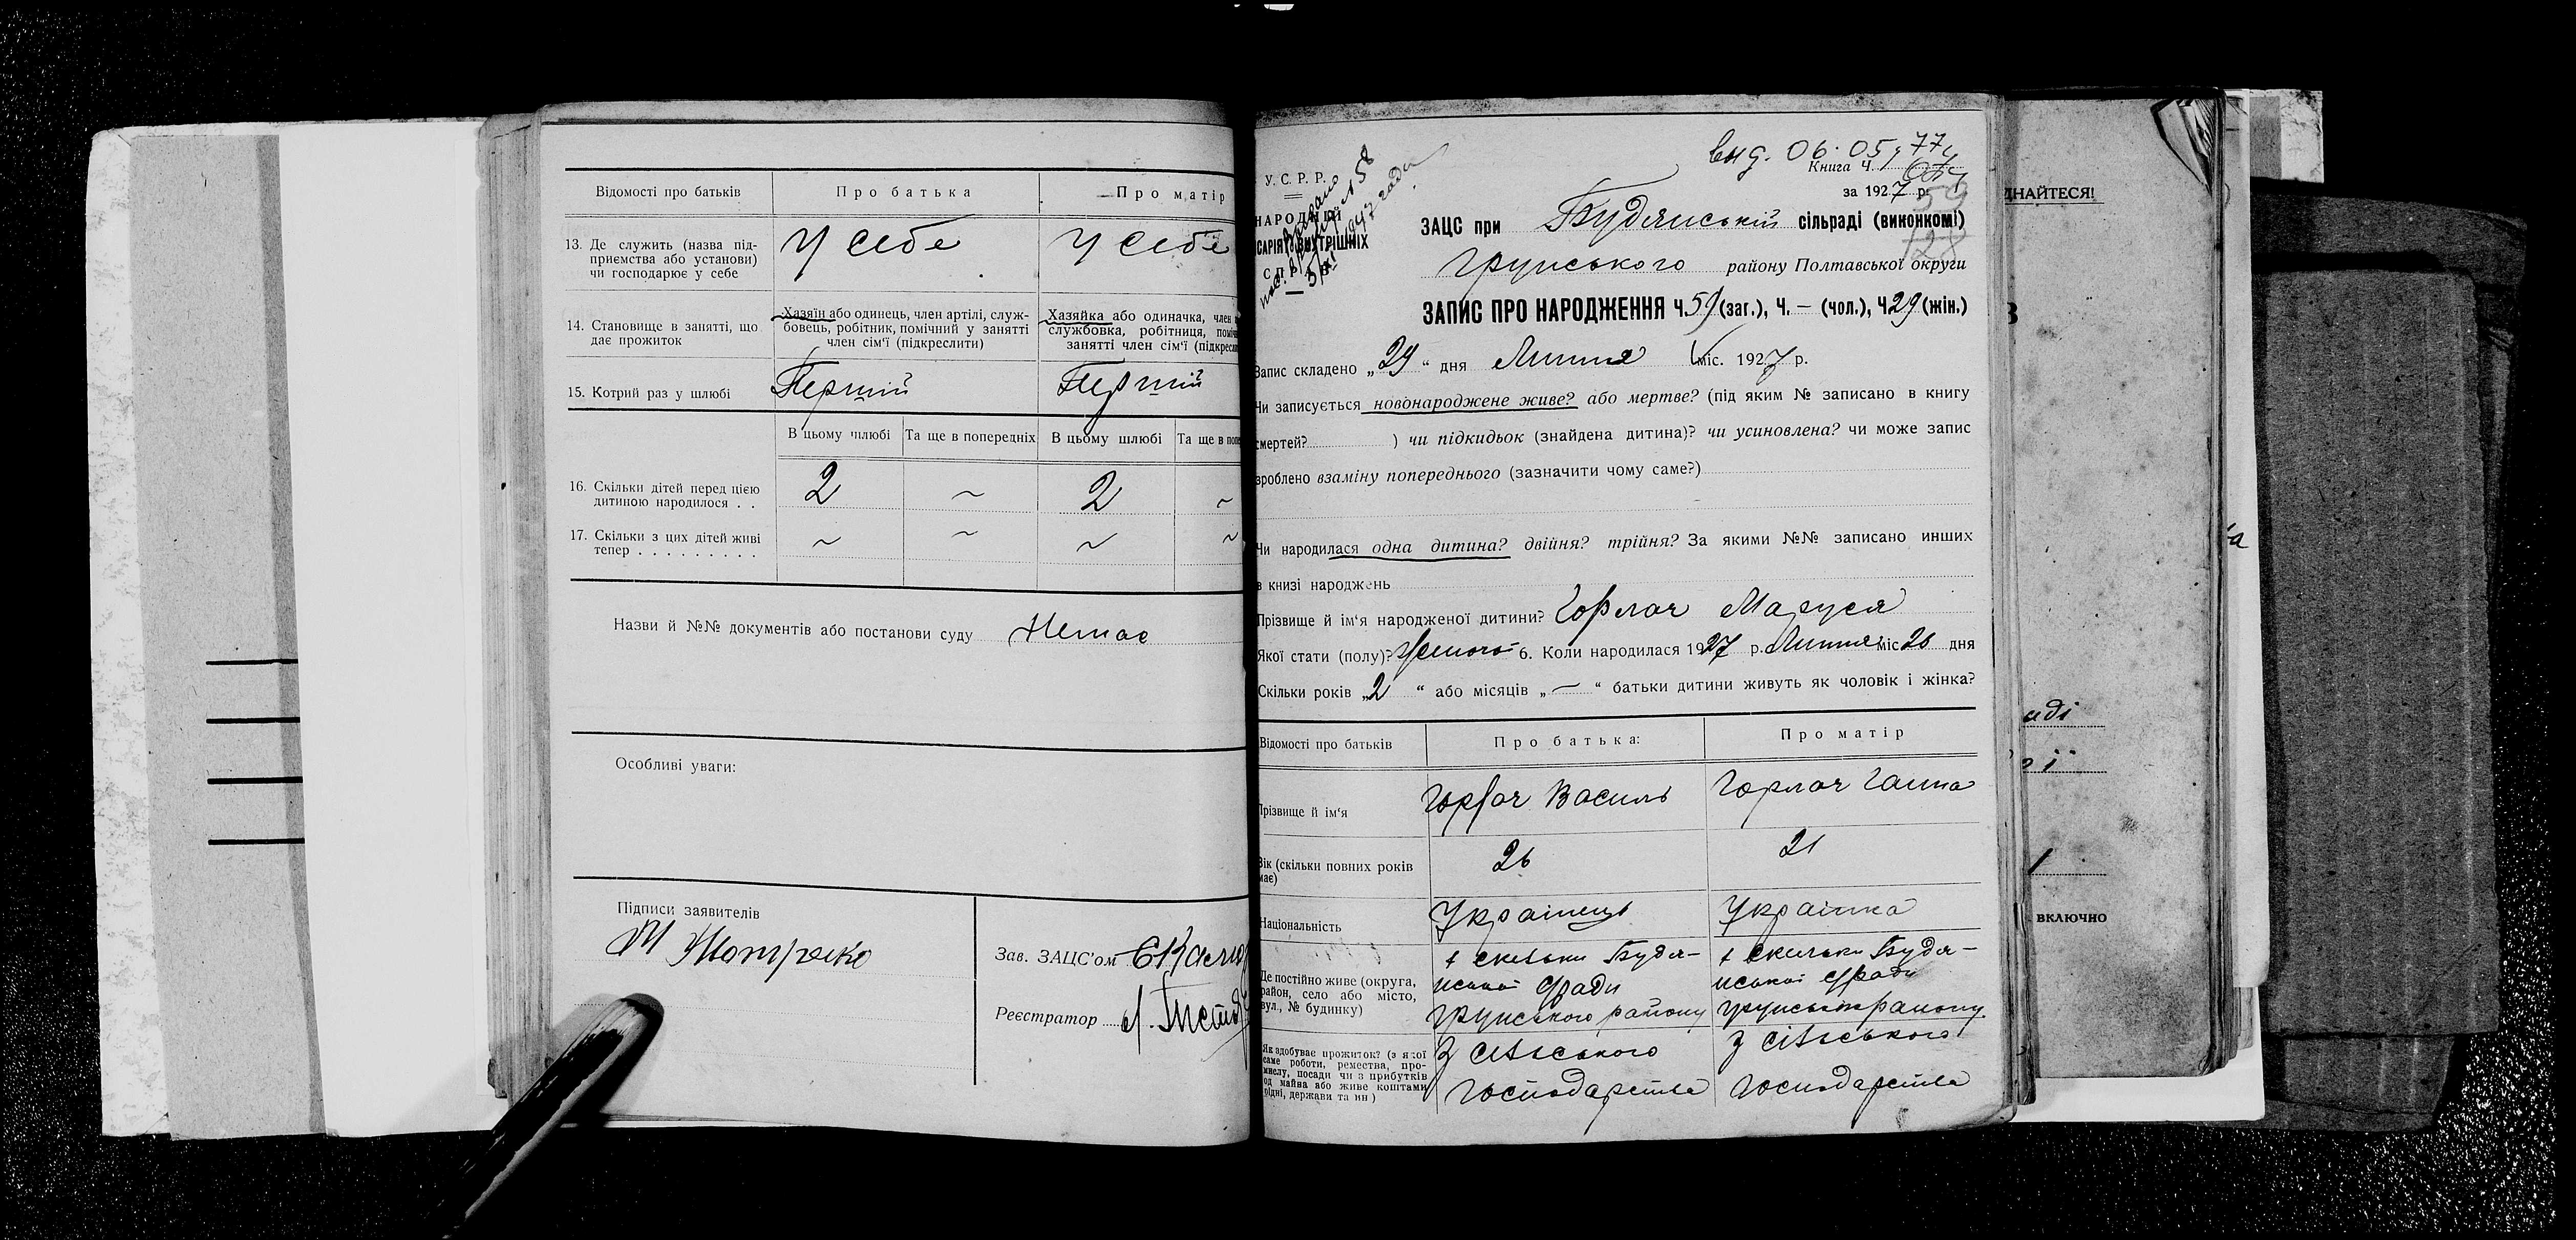 Відомості про батьків
Про батька
Про матір
13. Де служить (назва під-
приємства або установи)
чи господарює у себе
У себе
У себе
14. Становище в занятті, що
дає прожиток
Хазяїн або одинець, член артілі, служ-
бовець, робітник, помічний у занятті
член сім'ї (підкреслити)
Хазяйка або одиначка, член
службовка, робітниця,
занятті член сім'ї
15. Котрий раз у шлюбі
Перший
Перший
В цьому шлюбі
Та ще в попередніх
В цьому шлюбі
Та ще в
16. Скільки дітей перед цією
дитиною народилося . .
2
~
2
~
17. Скільки з цих дітей живі
тепер . . . . . . . . .
~
~
~
~
Назви й №№ документів або постанови суду
Немає
Особливі уваги:
Підписи заявителів
Зав. ЗАЦС'ом
Реєстратор
вид. 06.05.77
У. С. Р. Р.
Книга Ч.
за 1927 р.
59
НАРОДНІЙ
ВНУТРІШНІХ
ЗАЦС при Будянській сільраді (виконкомі)
Грунського району Полтавської округи
ЗАПИС ПРО НАРОДЖЕННЯ Ч. 59 (заг.), Ч. — (чол.), Ч. 29 (жін.)
Запис складено „29“ дня Липня міс. 1927 р.
Чи записується новонароджене живе? або мертве? (під яким № записано в книгу
смертей? ) чи підкидьок (знайдена дитина)? чи усиновлена? чи може запис
зроблено взаміну попереднього (зазначити чому саме?)
Чи народилася одна дитина? двійня? трійня? За якими №№ записано инших
в книзі народжень
Прізвище й ім'я народженої дитини? Горлач Маруся
Якої стати (полу)? Жіночої 6. Коли народилася 1927 р. Липня міс 26 дня
Скільки років „2“ або місяців „—“ батьки дитини живуть як чоловік і жінка?
Відомості про батьків
Про батька:
Про матір
Прізвище й ім'я
Горлач Василь
Горлач Ганна
Вік (скільки повних років
має)
26
21
Національність
Українець
Українка
Де постійно живе (округа,
район, село або місто,
вул., № будинку)
Будя-
нської с/ради
Грунського району
Будя-
нської с/ради
Грунського району
Як здобуває прожиток? (з якої
саме роботи, ремества, про-
мислу, посади чи з прибутків
од майва або живе коштами
рідні, держави та ин)
З сільського
господарства
З сільського
господарства
ДНАЙТЕСЯ!
включно